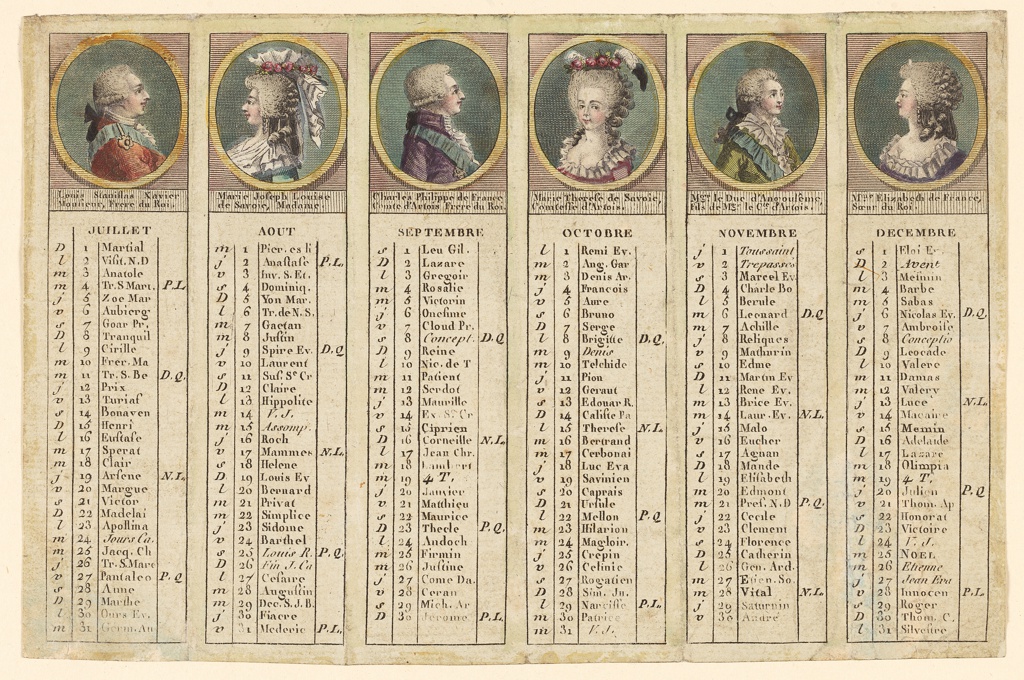 Louis Stanislas Xavier
Monsieur, Frere du Roi.
JUILLET
D 1 Martial
l 2 Visit. N.D
m 3 Anatole
m 4 Tr. S Mart. P.L
j 5 Zoe Mar
v 6 Aubierg
s 7 Goar Pr.
D 8 Tranquil
l 9 Cirille
m 10 Frer. Ma
m 11 Tr. S. Be D.Q.
j 12 Prix
v 13 Turiaf
s 14 Bonaven
D 15 Henri
l 16 Eustase
m 17 Sperat
m 18 Clair
j 19 Arsene N.L
v 20 Margue
s 21 Victor
D 22 Madelai
l 23 Apollina
m 24 Jours Ca.
m 25 Jacq. Ch
j 26 Tr. S. Marc
v 27 Pantaleo P.Q
s 28 Anne
D 29 Marthe
l 30 Ours Ev.
m 31 Germ. Au
Marie Joseph Louise
de Savoie, Madame.
AOUT
m 1 Pier. es li
j 2 Anastase P.L.
v 3 Inv. S. Et.
s 4 Dominiq.
D 5 Yon Mar.
l 6 Tr. de N.S.
m 7 Gaetan
m 8 Justin
j 9 Spire Ev. D.Q
v 10 Laurent
s 11 Sus. Se Cr
D 12 Claire
l 13 Hippolite
m 14 V. J.
m 15 Assomp.
j 16 Roch
v 17 Mammes N.L.
s 18 Helene
D 19 Louis Ev
l 20 Bernard
m 21 Privat
m 22 Simplice
j 23 Sidoine
v 24 Barthel
s 25 Louis R. P.Q.
D 26 Fin J. Ca
l 27 Cesaire
m 28 Augustin
m 29 Dec. S. J. B.
j 30 Fiacre
v 31 Mederic P.L.
Charles Philippe de France
Comte d'Artois Frere du Roi.
SEPTEMBRE
s 1 Leu Gil.
D 2 Lazare
l 3 Gregoir
m 4 Rosalie
m 5 Victorin
j 6 Onesime
v 7 Cloud Pr.
s 8 Concept. D.Q
D 9 Reine
l 10 Nic. de T
m 11 Patient
m 12 Serdot
j 13 Maurille
v 14 Ex. Se Cr
s 15 Ciprien
D 16 Corneille N.L.
l 17 Jean Chr.
m 18 Lambert
m 19 4 T.
j 20 Janvier
v 21 Matthieu
s 22 Maurice
D 23 Thecle P.Q.
l 24 Andoch
m 25 Firmin
m 26 Justine
j 27 Come Da.
v 28 Ceran
s 29 Mich. Ar
D 30 Jerome P.L.
Marie Therese de Savoie,
Comtesse d'Artois.
OCTOBRE
l 1 Remi Ev.
m 2 Ang. Gar
m 3 Denis Ar.
j 4 Francois
v 5 Aure
s 6 Bruno
D 7 Serge
l 8 Brigitte D.Q.
m 9 Denis
m 10 Telchide
j 11 Pion
v 12 Geraut
s 13 Edouar R.
D 14 Caliste Pa
l 15 Therese N.L
m 16 Bertrand
m 17 Cerbonai
j 18 Luc Eva
v 19 Savinien
s 20 Caprais
D 21 Ursule
l 22 Mellon P.Q
m 23 Hilarion
m 24 Magloir.
j 25 Crepin
v 26 Celinie
s 27 Rogatien
D 28 Sim. Ju.
l 29 Narcisse P.L.
m 30 Patrice
m 31 V. J.
Mgr. le Duc d'Angoulême,
Fils de Mgr. le Cte. d'Artois.
NOVEMBRE
j 1 Toussaint
v 2 Trepasses
s 3 Marcel Ev.
D 4 Charle Bo
l 5 Berule
m 6 Leonard D.Q
m 7 Achille
j 8 Reliques
v 9 Mathurin
s 10 Edme
D 11 Martin Ev
l 12 Rene Ev.
m 13 Brice Ev.
m 14 Laur. Ev. N.L.
j 15 Malo
v 16 Eucher
s 17 Agnan
D 18 Mande
l 19 Elisabeth
m 20 Edmont
m 21 Pres. N.D P.Q.
j 22 Cecile
v 23 Clement
s 24 Florence
D 25 Catherin
l 26 Gen. Ard.
m 27 Etien. So.
m 28 Vital N.L.
j 29 Saturnin
v 30 André
Mme. Elizabeth de France,
Sœur du Roi.
DECEMBRE
s 1 Eloi Ev.
D 2 Avent
l 3 Mesmin
m 4 Barbe
m 5 Sabas
j 6 Nicolas Ev. D.Q.
v 7 Ambroise
s 8 Conceptio
D 9 Leocade
l 10 Valere
m 11 Damas
m 12 Valery
j 13 Luce N.L.
v 14 Macaire
s 15 Memin
D 16 Adelaide
l 17 Lazare
m 18 Olimpia
m 19 4 T.
j 20 Julien P.Q
v 21 Thom. Ap
s 22 Honorat
D 23 Victoire
l 24 V. J.
m 25 NOEL
m 26 Etienne
j 27 Jean Eva
v 28 Innocen P.L
s 29 Roger
D 30 Thom. C.
l 31 Silvestre